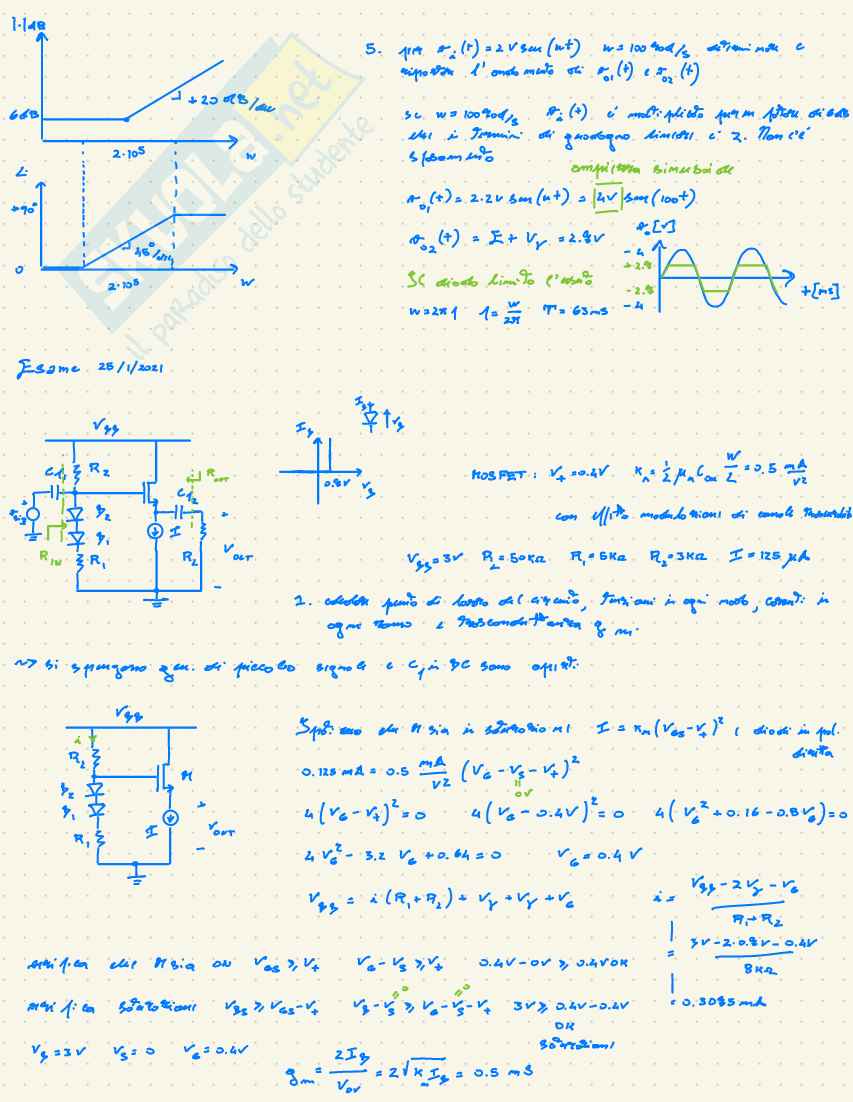 |·|dB
6dB
+20 dB/dec
2·10⁵
w
∠
+90°
0
45°/dec
2·10⁵
w
SKUOLA.net
il paradiso dello studente
5. per (t) = 2V sen(wt) w = 100 rad/s determinare e
riportare l'andamento di v01(t) e v02(t)
se w = 100 rad/s (t) è moltiplicato per un fattore di 6dB
in termini di guadagno lineare è 2. Non c'è
sfasamento
ampiezza sinusoide
v01(t) = 2·2V sen(wt) = 4V sen(100t)
v02(t) = E + Vγ = 2.8V
SC diodo limita
w = 2πf f = w/2π T = 63ms
[V]
-4
+2.8
-2.8
-4
t[ms]
Esame 25/1/2021
VDD
R2
D2
D1
R1
RIN
I
ROUT
VOUT
ID
0.8V
VD
MOSFET: Vt = 0.4V Kn = 1/2 μn Cox W/L = 0.5 mA/V²
con effetto modulazione di canale trascurabile
VDD = 3V RL = 50KΩ R1 = 5KΩ R2 = 3KΩ I = 125 μA
1. punto di lavoro del circuito, tensioni in ogni nodo, correnti in
ogni ramo e transconduttanza gm.
~> si spengono gen. di piccolo segnale e in DC sono aperti
VDD
i
R2
D2
D1
R1
M
I
VOUT
Ipotizzo che M sia in saturazione I = Kn(VGS - Vt)² i diodi in pol.
diretta
0.125 mA = 0.5 mA/V² (VG - VS - Vt)²
0V
4(VG - Vt)² = 0 4(VG - 0.4V)² = 0 4(VG² + 0.16 - 0.8VG) = 0
4VG² - 3.2 VG + 0.64 = 0 VG = 0.4V
VDD = i(R1 + R2) + Vγ + Vγ + VG
i = VDD - 2Vγ - VG / R1 + R2
= 3V - 2·0.8V - 0.4V / 8KΩ
= 0.3085 mA
verifica che M sia ON VGS ≥ Vt VG - VS ≥ Vt 0.4V - 0V ≥ 0.4V OK
verifica saturazione VDS ≥ VGS - Vt VD - VS ≥ VG - VS - Vt 3V ≥ 0.4V - 0.4V
OK
saturazione
VD = 3V VS = 0 VG = 0.4V
gm = 2ID / VOV = 2√KnID = 0.5 mS